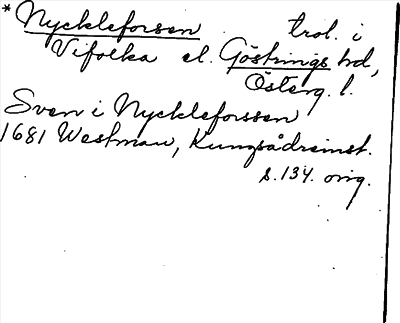 * Nyckleforsen trol. i
Vifolka el. Göstrings hd,
Österg. l.
Sven i Nyckleforssen
1681 Westman, Kungsådreinst.
s. 134. orig.